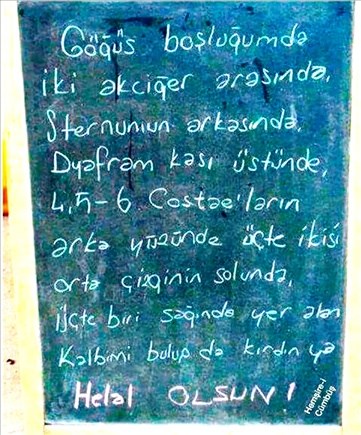 Göğüs boşluğumda
iki akciğer arasında,
Sternumun arkasında,
Dyafram kası üstünde,
4,5-6 Costae'ların
arka yüzünde üçte ikisi
orta çizginin solunda,
üçte biri sağında yer alan
Kalbimi bulup da kırdın ya
Helal OLSUN!
Hemşire-i
Cümbüş